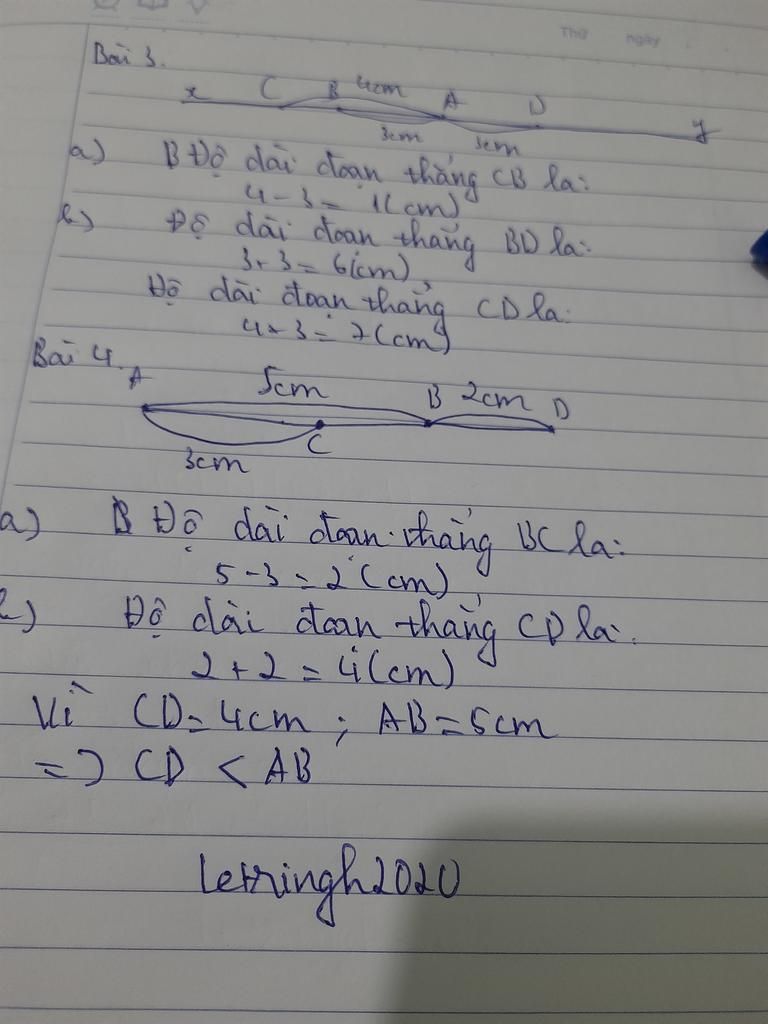 Thứ ngày
Bài 3.
x C B 4cm A D y
3cm 3cm
a) B Độ dài đoạn thẳng CB là:
4 - 3 = 1(cm)
b) Độ dài đoạn thẳng BD là:
3 + 3 = 6(cm)
Độ dài đoạn thẳng CD là:
4 + 3 = 7(cm)
Bài 4.
A 5cm B 2cm D
3cm C
a) B Độ dài đoạn thẳng BC là:
5 - 3 = 2 (cm)
b) Độ dài đoạn thẳng CD là:
2 + 2 = 4(cm)
Vì CD = 4cm ; AB = 5cm
=> CD < AB
letringh2020